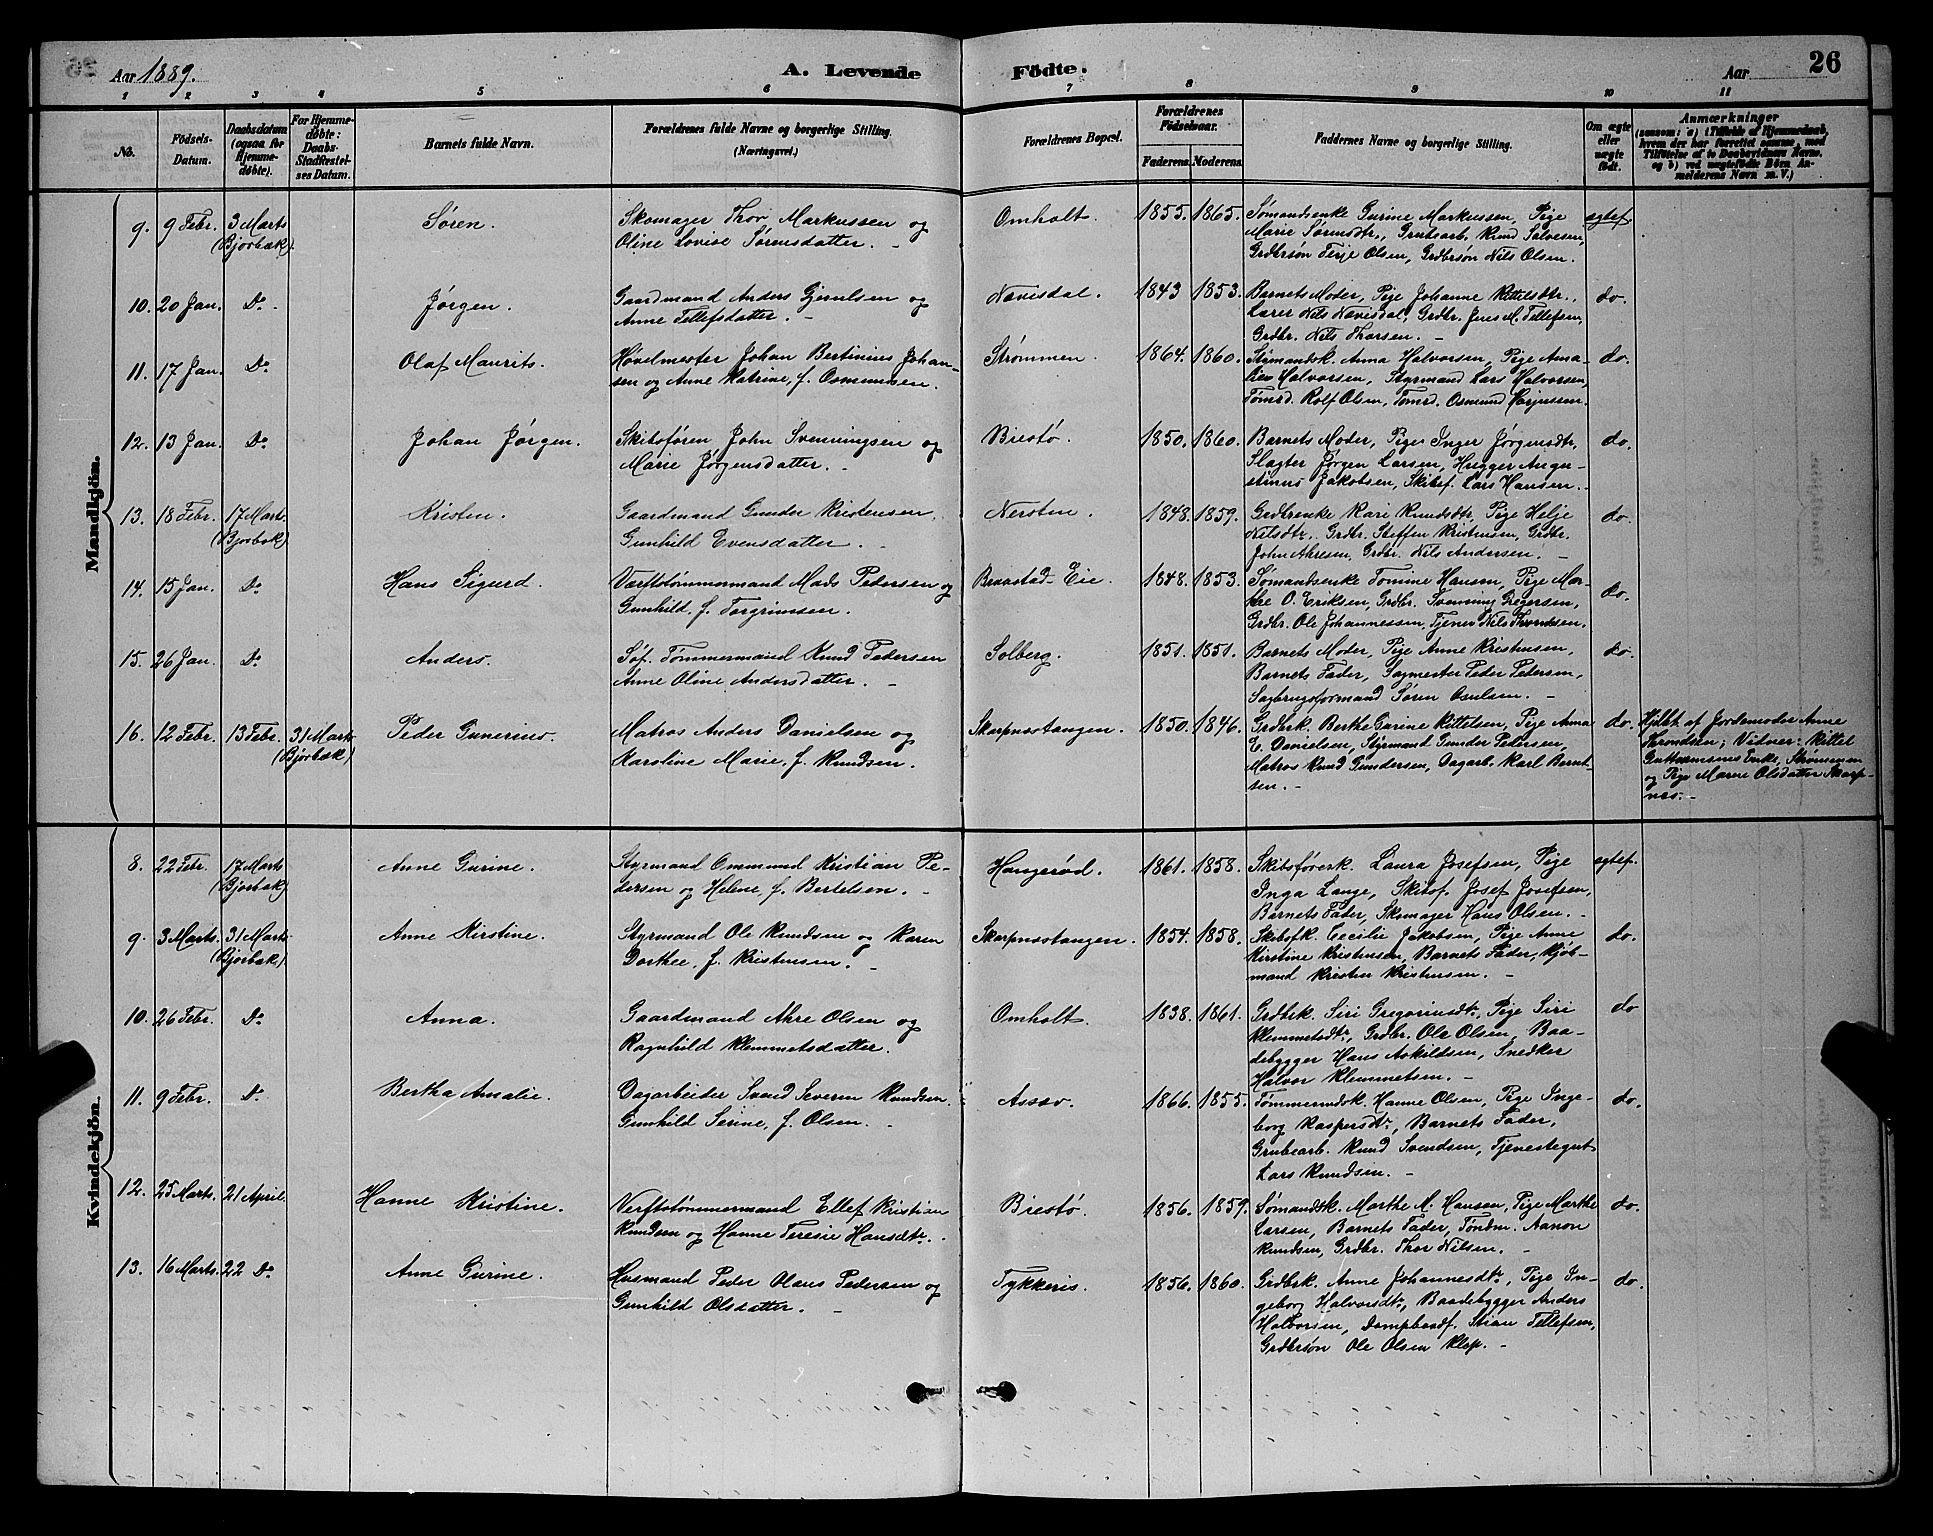 Aar 1889.
A. Levende Födte.
Aar
26
1 2 3 4 5 6 7 8 9 10 11
No.
Födsels-Datum.
Daabsdatum (ogsaa for Hjemmedöbte).
For Hjemmedöbte: Daabs-Stadfæstelses Datum.
Barnets fulde Navn.
Forældrenes fulde Navne og borgerlige Stilling.
(Næringsvei.)
Forældrenes Bopæl.
Forældrenes Födselsaar.
Faderens. Moderens.
Faddernes Navne og borgerlige Stilling.
Om ægte eller uægte födt.
Anmærkninger
(saasom: a) i Tilfælde af Hjemmedaab, hvem der har forrettet samme, med Tilföielse af to Daabsvidners Navne, og b) ved uægtefödte Börn Anmelderens Navn m. V.)
Mandkjön.
9. 9 Febr. 3 Marts (Bjorbæk) Søren. Skomager Thor Markussen og
Oline Lovise Sørensdatter. -
Omholt. 1855. 1865. Sømandsenke Gurine Markussen, Pige
Marie Sørensdtr., Grubearb. Knud Salvesen,
Grdbrsøn Terje Olsen, Grdbrsøn Nils Olsen.
ægtef.
10. 20 Jan. Do. Jørgen. Gaardmand Anders Gjerulsen og
Anne Tellefsdatter. -
Nævisdal. 1843 1853. Barnets Moder, Pige Johanne Kittelsdtr.,
Lærer Nils Nævisdal, Grdbr. Jens M. Tellefsen,
Grdbr. Nils Thorsen. -
do.
11. 17 Jan. Do Olaf Maurits. Hovelmester Johan Bertinius Johan-
sen og Anne Katrine, f. Osmundsen.
Strømmen. 1864. 1860. Styrmandsk. Anna Halvorsen, Pige Ama-
lie Halvorsen, Styrmand Lars Halvorsen,
Tømrd. Rolf Olsen, Tømrd. Osmund
do.
12. 13 Jan. Do Johan Jørgen. Skibsføren John Svenningsen og
Marie Jørgensdatter. -
Biestø. 1850. 1860. Barnets Moder, Pige Inger Jørgensdtr,
Slagter Jørgen Larsen, Hugger Augu-
stinus Jakobsen, Skibsf. Lars Hansen. -
do.
13. 18 Febr. 17 Marts. (Bjorbæk) Kristen. Gaardmand Gunder Kristensen.
Gunhild Evensdatter. -
Nersten. 1848. 1859. Grdbrenke Kari Knudsdtr, Pige Helje
Nilsdtr. Grdbr. Steffen Kristensen, Grdbr.
John Akresen, Grdbr. Nils Andersen. -
do.
14. 15 Jan. Do Hans Sigurd. Værftstømmermand Mads Pedersen og
Gunhild, f. Torgrimsen.
Braastad-Eie. 1848. 1853. Sømandsenke Tomine Hansen, Pige Mar-
the O. Eriksen, Grdbr. Svenning Gregersen,
Grdbr. Ole Johannessen, Tjener Nils Thronsen.
do.
15. 26 Jan. Do Anders. Søf. Tømmermand Knud Pedersen
Anne Oline Andersdatter. -
Solberg. 1851. 1851. Barnets Moder, Pige Anne Kristensen,
Barnets Fader, Sagmester Peder Pedersen,
Sagbrugsformand Søren Osulsen. -
do.
16. 12 Febr. 13 Febr. 31 Marts (Bjorbæk) Peder Gunerius. Matros Anders Danielsen og
Karoline Marie, f. Knudsen.
Skarpnesstangen. 1850. 1846. Grdbrk. Berthe Garine Kittelsen, Pige Anna
E. Danielsen, Styrmand Gunder Pedersen,
Matros Knud Gundersen, Dagarb. Karl Bernt-
sen. -
do.
Hjdøbt af Jordemoder Anne
Thronsen; Vidner: Kittel
Guttormsens Enke, Strømmen
og Pige Maren Olsdatter Skarp-
nes. -
Kvindekjön.
8. 22 Febr. 17 Marts (Bjorbæk) Anne Gurine. Styrmand Ommund Kristian Pe-
dersen og Helene, f. Bertelsen. -
Haugerød. 1861. 1858. Skibsførerk. Laura Josefsen, Pige
Inga Lange, Skibsf. Josef Josefsen,
Barnets Fader, Skomager Hans Olsen. -
ægtef.
9. 3 Marts. 31 Marts (Bjorbæk) Anne Kirstine. Styrmand Ole Knudsen og Karen
Dorthee, f. Kristensen. -
Skarpnesstangen. 1854. 1858. Skibsfk. Cecilie Jakobsen, Pige Anne
Kirstine Kristensen, Barnets Fader, Kjøb-
mand Kristen Kristensen. -
do.
10. 26 Febr. Do Anna. Gaardmand Akre Olsen og
Ragnhild Klemmetsdatter.
Omholt. 1838. 1861. Grdbrk. Siri Gregoriusdtr, Pige Siri
Klemmetsdtr, Grdbr. Ole Olsen, Baa-
debygger Hans Askildsen, Snedker
Halvor Klemmetsen. -
do
11. 9 Febr. Do. Bertha Amalie. Dagarbeider Svend Severin Knudsen.
Gunhild Serine, f. Olsen. -
Assev. 1866. 1855. Tømmermdsk. Hanne Olsen, Pige Inge-
borg Kaspersdtr, Barnets Fader,
Grubearb. Knud Svendsen, Tjenestegut
Lars Knudsen. -
do.
12. 25 Marts. 21 April. Hanne Kristine. Verftstømmermand Ellef Kristian
Knudsen og Hanne Teresie Hansdtr. -
Biestø. 1856. 1859. Sømandsk. Marthe M. Hansen, Pige Marthe
Larsen, Barnets Fader, Tøndm. Aanon
Knudsen, Grdbr. Thor Nilsen. -
do.
13. 16 Marts. 22 Do. Anne Gurine. Husmand Peder Olaus Pedersen og
Gunhild Olsdatter. -
Tykkeris. 1856. 1860. Grdbrk. Anne Johannesdtr, Pige In-
geborg Halvorsdtr, Baadebygger Anders
Halvorsen, Dampbaadf. Stian Tellefsen,
Grdbrsøn Ole Olsen Klep. -
do.